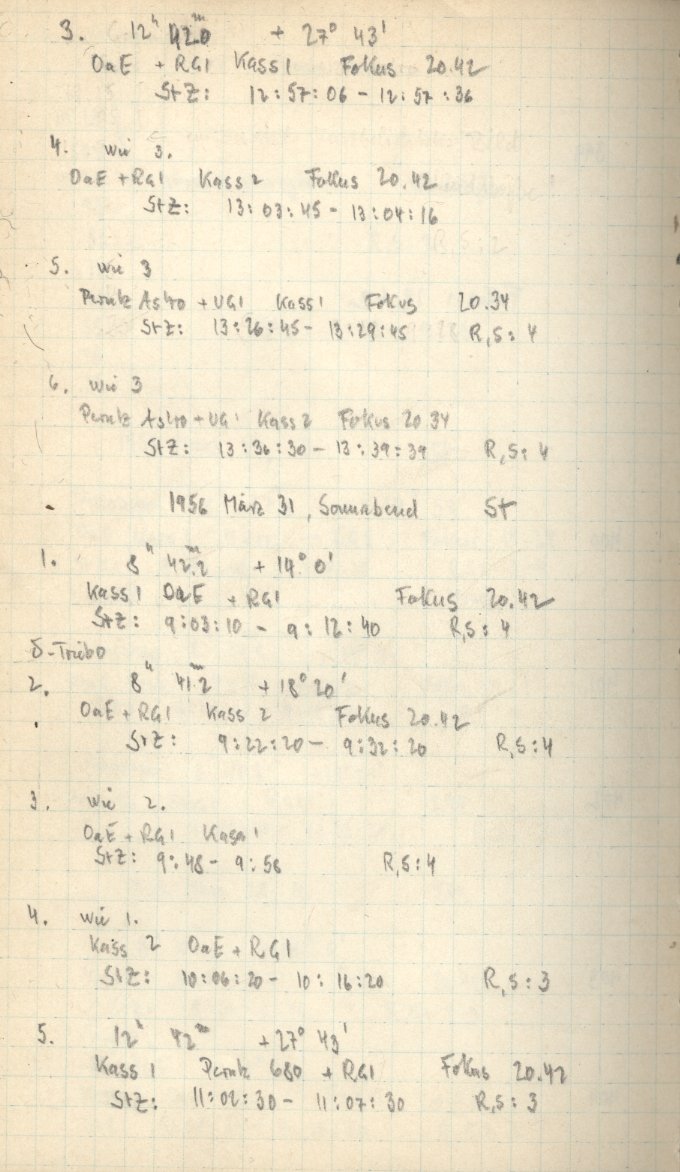 3. 12ʰ 42ᵐ0 + 27° 43'
OaE + RG1 Kass 1 Fokus 20.42
StZ: 12:57:06 - 12:57:36
4. wie 3.
OaE + RG1 Kass 2 Fokus 20.42
StZ: 13:03:45 - 13:04:16
5. wie 3
Perutz Astro + UG1 Kass 1 Fokus 20.34
StZ: 13:26:45 - 13:29:45 R,S: 4
6. wie 3
Perutz Astro + UG1 Kass 2 Fokus 20.34
StZ: 13:36:30 - 13:39:39 R,S: 4
1956 März 31, Sonnabend St
1. 8ʰ 42ᵐ.2 + 19° 0'
Kass 1 OaE + RG1 Fokus 20.42
StZ: 9:03:10 - 9:12:40 R,S: 4
δ-Trieb
2. 8ʰ 41ᵐ.2 + 18° 20'
OaE + RG1 Kass 2 Fokus 20.42
StZ: 9:22:20 - 9:32:20 R,S: 4
3. wie 2.
OaE + RG1 Kass 1
StZ: 9:48 - 9:58 R,S: 4
4. wie 1.
Kass 2 OaE + RG1
StZ: 10:06:20 - 10:16:20 R,S: 3
5. 12ʰ 42ᵐ + 27° 43'
Kass 1 Perutz 680 + RG1 Fokus 20.42
StZ: 11:02:30 - 11:07:30 R,S: 3